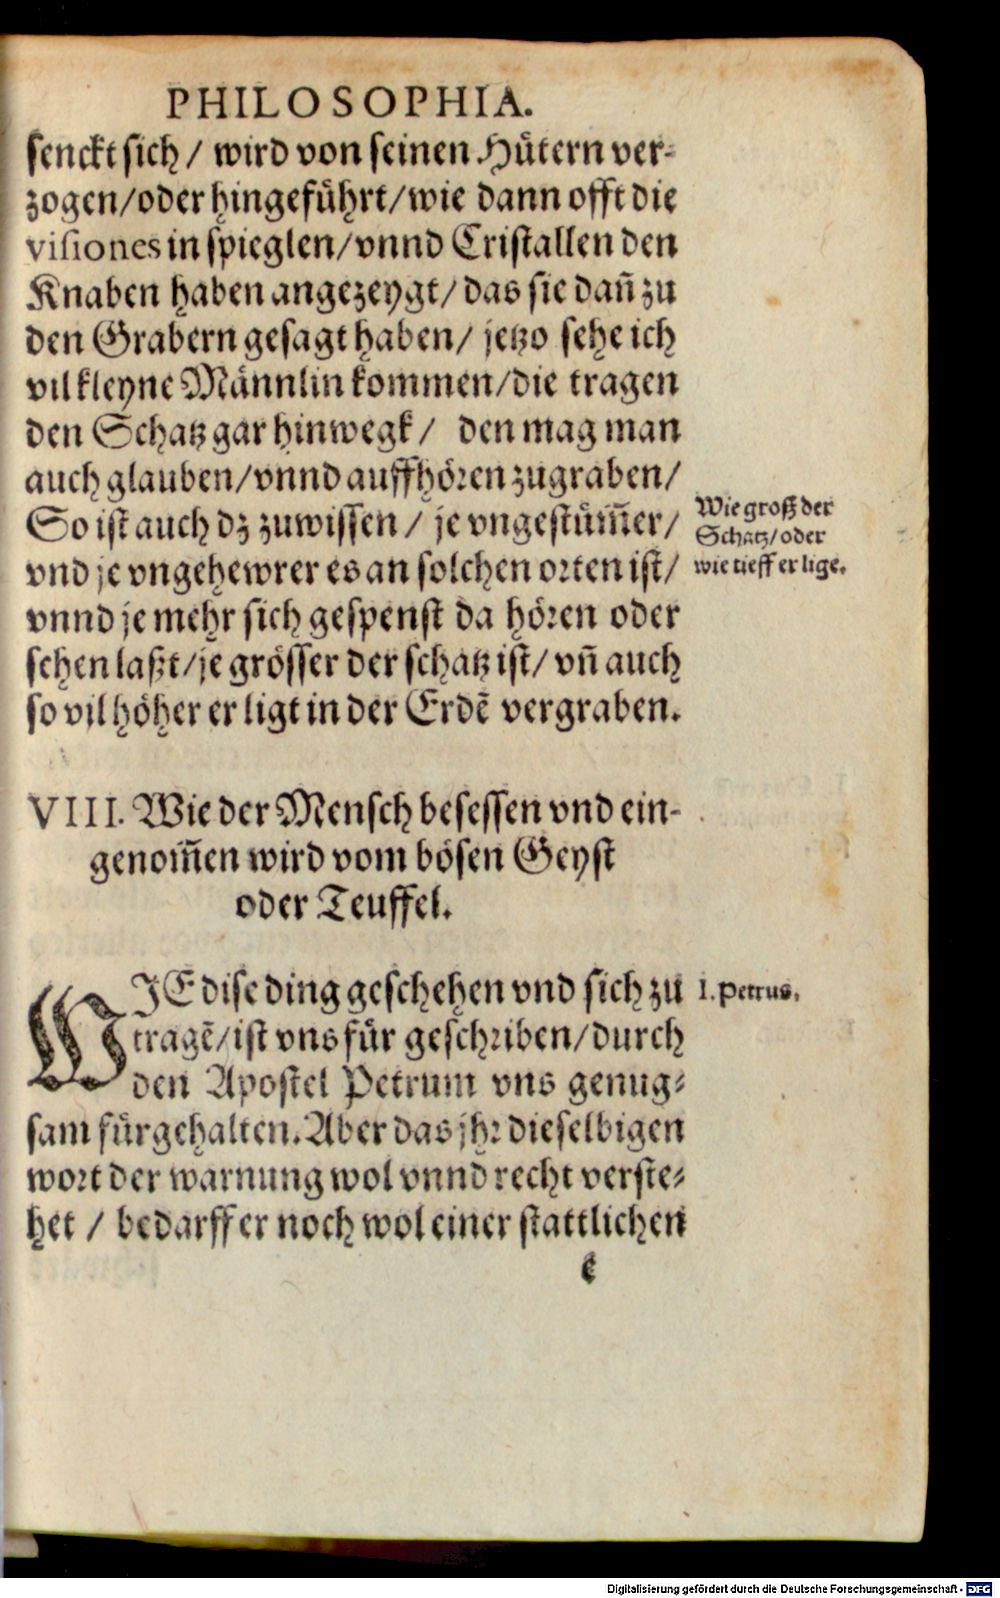 PHILOSOPHIA.
senckt sich / wird von seinen Hütern ver-
zogen/oder hingeführt/wie dann offt die
visiones in spieglen/vnnd Cristallen den
Knaben haben angezeygt/das sie dañ zu
den Grabern gesagt haben/ jetzo sehe ich
vil kleyne Männlin kommen/die tragen
den Schatz gar hinwegk/ den mag man
auch glauben/vnnd auffhören zugraben/
So ist auch dz zuwissen / je vngestüm̃er/
vnd je vngehewrer es an solchen orten ist/
vnnd je mehr sich gespenst da hören oder
sehen laßt/je grösser der schatz ist/ vñ auch
so vil höher er ligt in der Erdẽ vergraben.
Wie groß der
Schatz/oder
wie tieff er lige.
VIII. Wie der Mensch besessen vnd ein-
genom̃en wird vom bösen Geyst
oder Teuffel.
WIE dise ding geschehen vnd sich zu
tragẽ/ist vns für geschriben/durch
den Apostel Petrum vns genug-
sam fürgehalten. Aber das jhr dieselbigen
wort der warnung wol vnnd recht verste-
het / bedarff er noch wol einer stattlichen
1. Petrus.
e
Digitalisierung gefördert durch die Deutsche Forschungsgemeinschaft - DFG